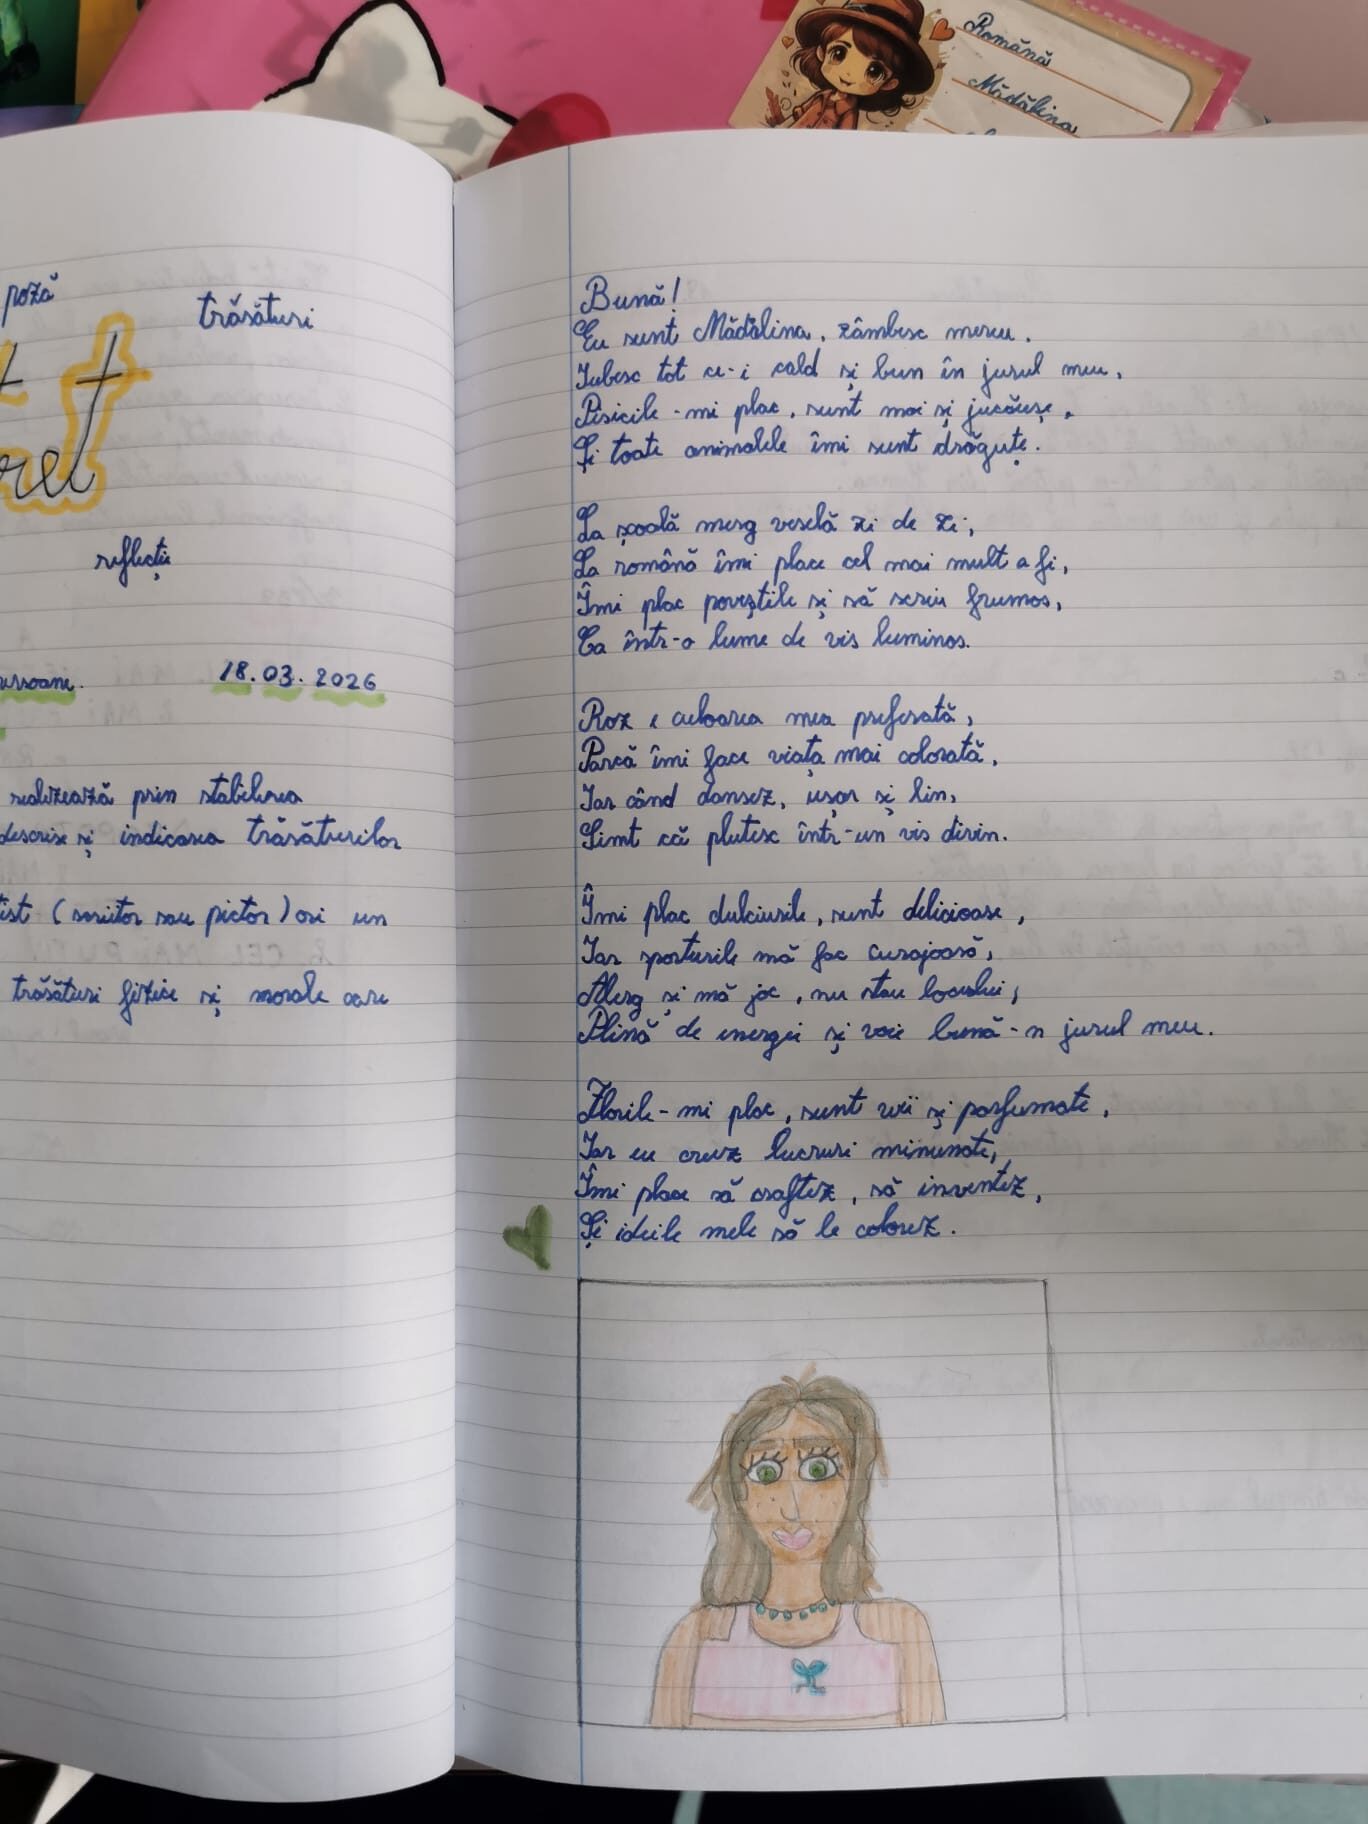 Română
Mădălina
poză
trăsături
reflecție
18.03.2026
realizează prin stabilirea
descrise și indicarea trăsăturilor
(scriitor sau pictor) ori un
trăsături fizice și morale care
Bună!
Eu sunt Mădălina, zâmbesc mereu.
Iubesc tot ce-i cald și bun în jurul meu,
Pisicile-mi plac, sunt moi și jucăușe,
Și toate animalele îmi sunt drăguțe.
La școală merg veselă zi de zi,
La română îmi place cel mai mult a fi,
Îmi plac poveștile și să scriu frumos,
Ca într-o lume de vis luminos.
Roz e culoarea mea preferată,
Parcă îmi face viața mai colorată,
Iar când dansez, ușor și lin,
Simt că plutesc într-un vis divin.
Îmi plac dulciurile, sunt delicioase,
Iar sporturile mă fac curajoasă,
Alerg și mă joc, nu stau locului,
Plină de energii și voie bună-n jurul meu.
Florile-mi plac, sunt vii și parfumate,
Iar eu creez lucruri minunate,
Îmi place să craftez, să inventez,
Și ideile mele să le colorez.